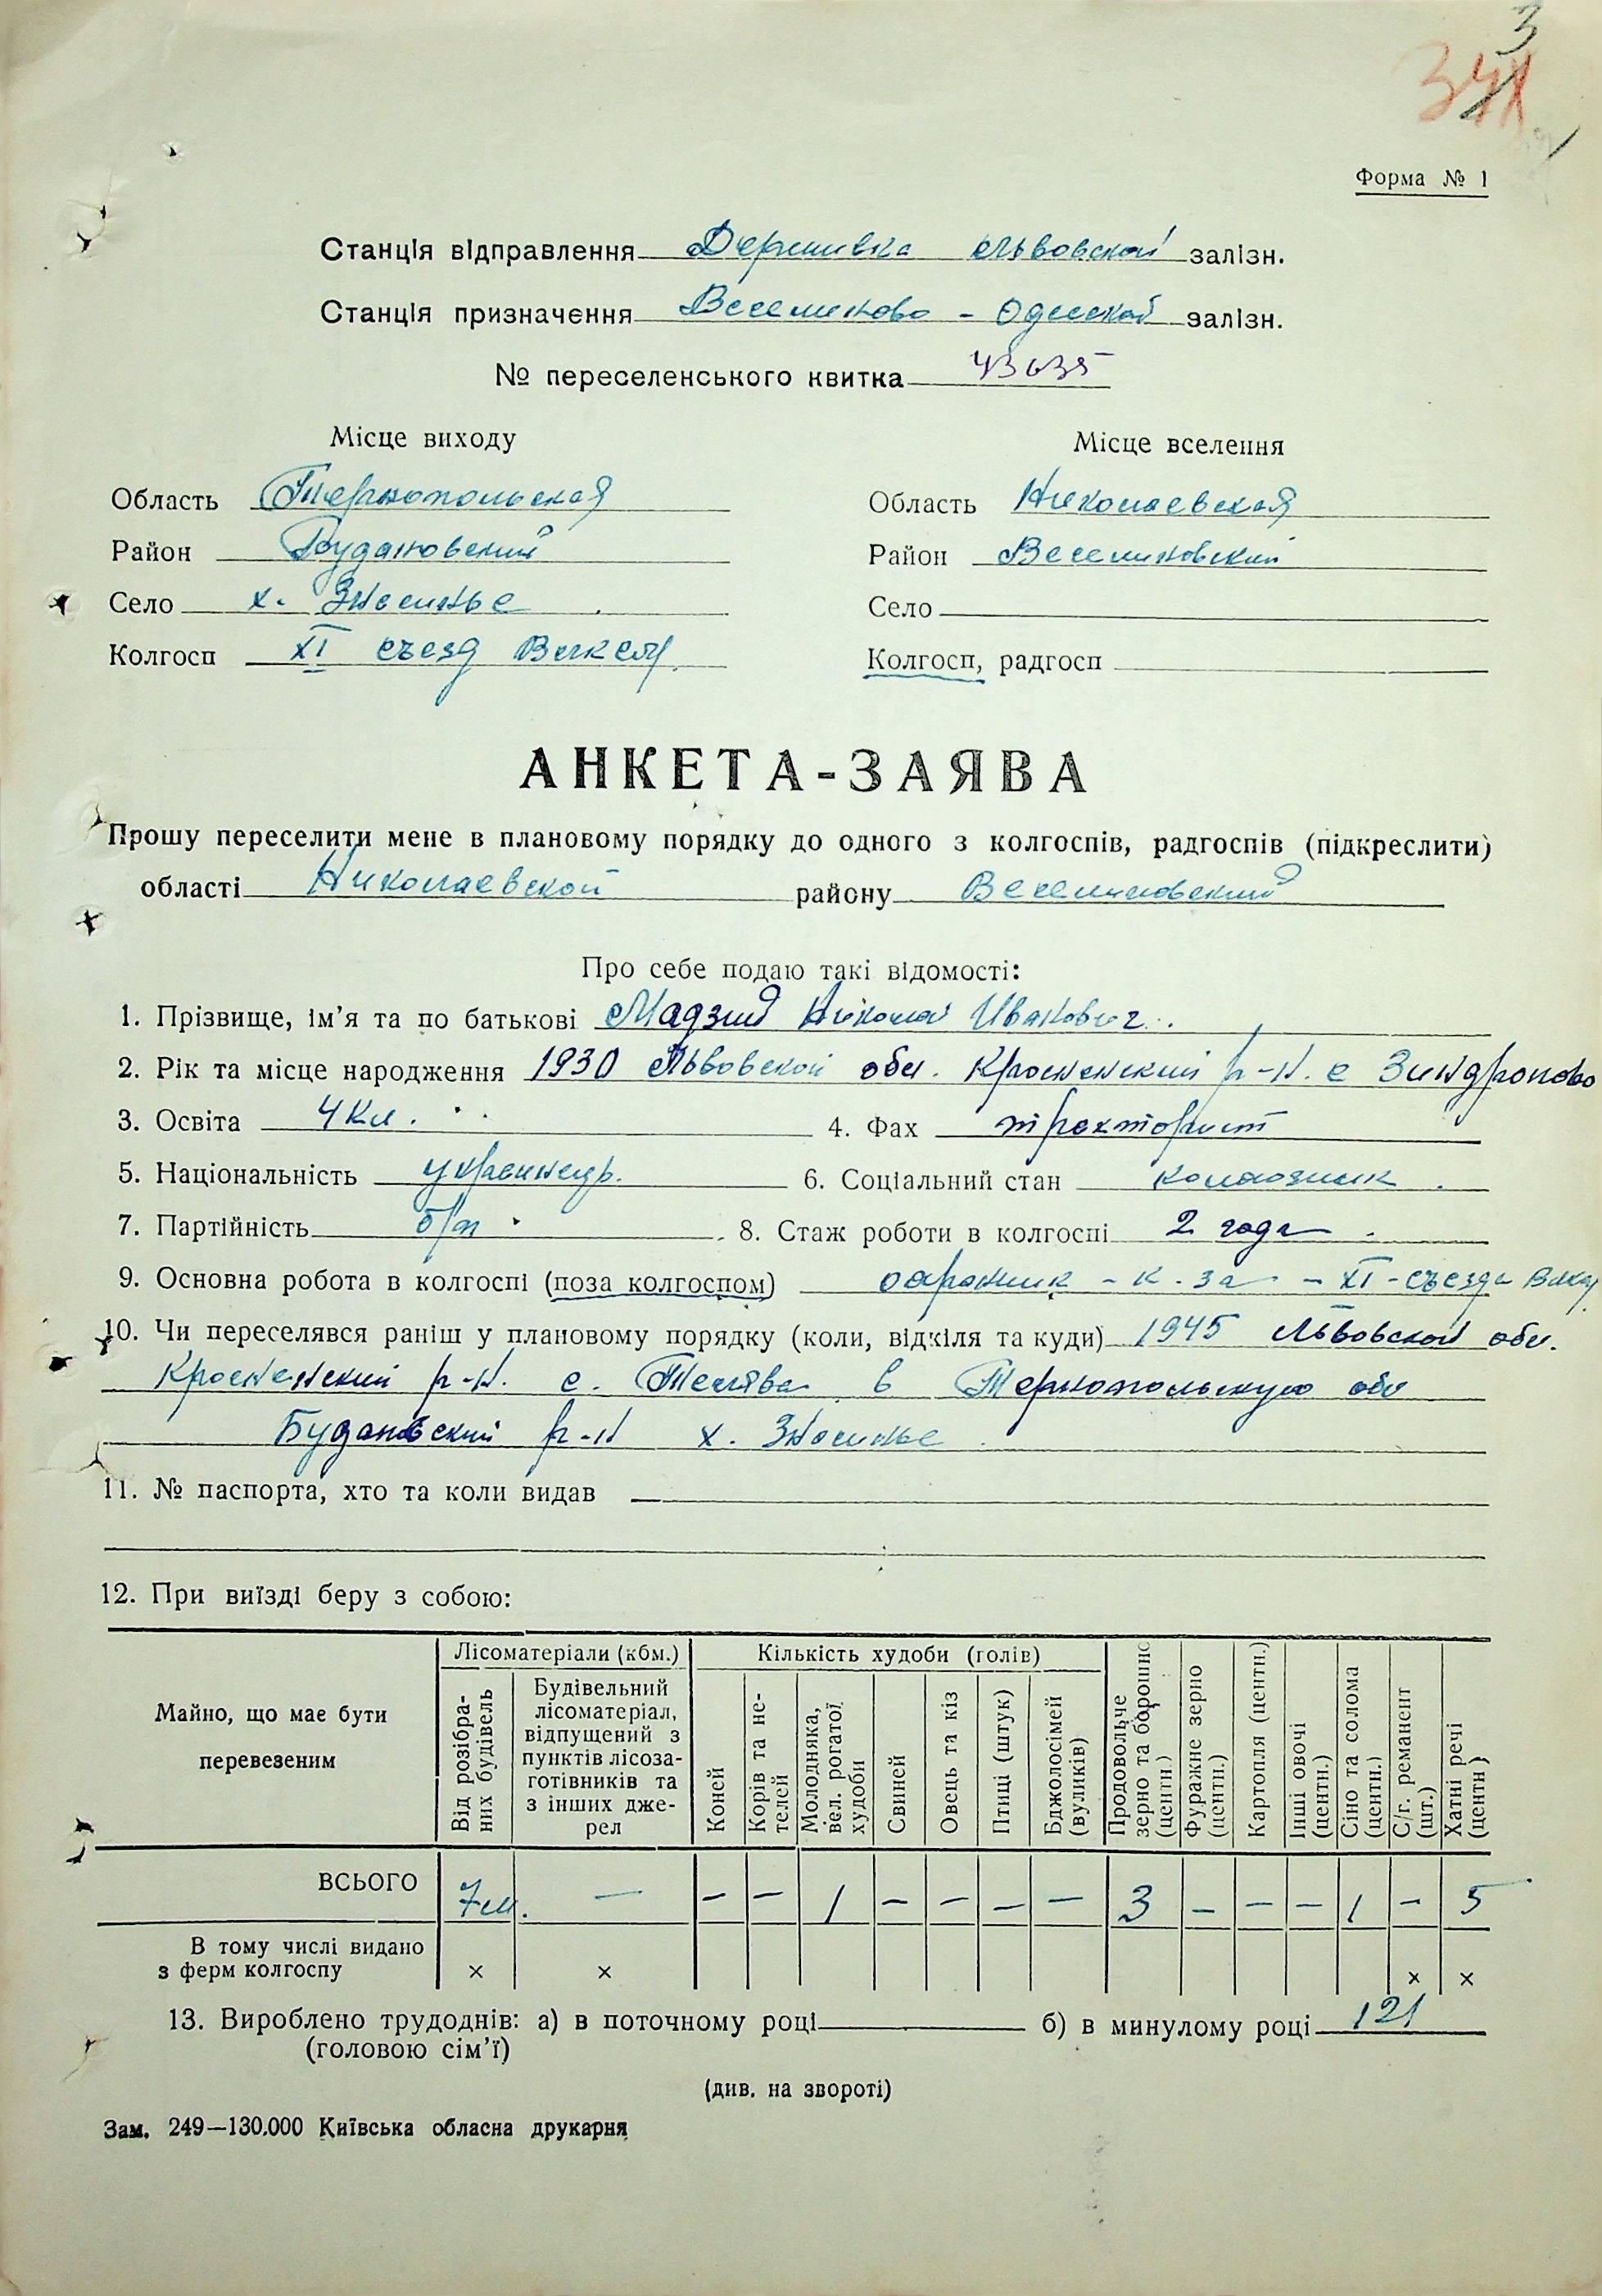 3
Форма № 1
Станція відправлення Деренивка Львовской залізн.
Станція призначення Веселиново - Одесской залізн.
№ переселенського квитка 43635
Місце виходу Місце вселення
Область Тернопольская Область Николаевская
Район Будановский Район Веселиновский
Село х. Зносинье Село
Колгосп XI съезд Влксм Колгосп, радгосп
АНКЕТА-ЗАЯВА
Прошу переселити мене в плановому порядку до одного з колгоспів, радгоспів (підкреслити)
області Николаевской району Веселиновский
Про себе подаю такі відомості:
1. Прізвище, ім'я та по батькові Мадзий Николай Иванович
2. Рік та місце народження 1930 Львовской обл. Кросненский р-н. с Зиндроново
3. Освіта 4 кл. 4. Фах тракторист
5. Національність украинец. 6. Соціальний стан колхозник
7. Партійність б/п 8. Стаж роботи в колгоспі 2 года
9. Основна робота в колгоспі (поза колгоспом) охраник - к-за - XI - съезда Влксм
10. Чи переселявся раніш у плановому порядку (коли, відкіля та куди) 1945 Львовской обл.
Кросненский р-н. с. в Тернопольскую обл
Будановский р-н х. Зносинье
11. № паспорта, хто та коли видав —
12. При виїзді беру з собою:
Майно, що має бути перевезеним
Лісоматеріали (кбм.) Кількість худоби (голів)
Від розібраних будівель
Будівельний лісоматеріал, відпущений з пунктів лісозаготівників та з інших джерел
Коней
Корів та нетелей
Молодняка, вел. рогатої худоби
Свиней
Овець та кіз
Птиці (штук)
Бджолосімей (вуликів)
Продовольче зерно та борошно (центн.)
Фуражне зерно (центн.)
Картопля (центн.)
Інші овочі (центн.)
Сіно та солома (центн.)
С/г. реманент (шт.)
Хатні речі (центн)
ВСЬОГО 7 м. — – – 1 – – – – 3 – – – 1 – 5
В тому числі видано
з ферм колгоспу × × × ×
13. Вироблено трудоднів: а) в поточному році б) в минулому році 121
(головою сім'ї)
(див. на звороті)
Зам. 249—130.000 Київська обласна друкарня